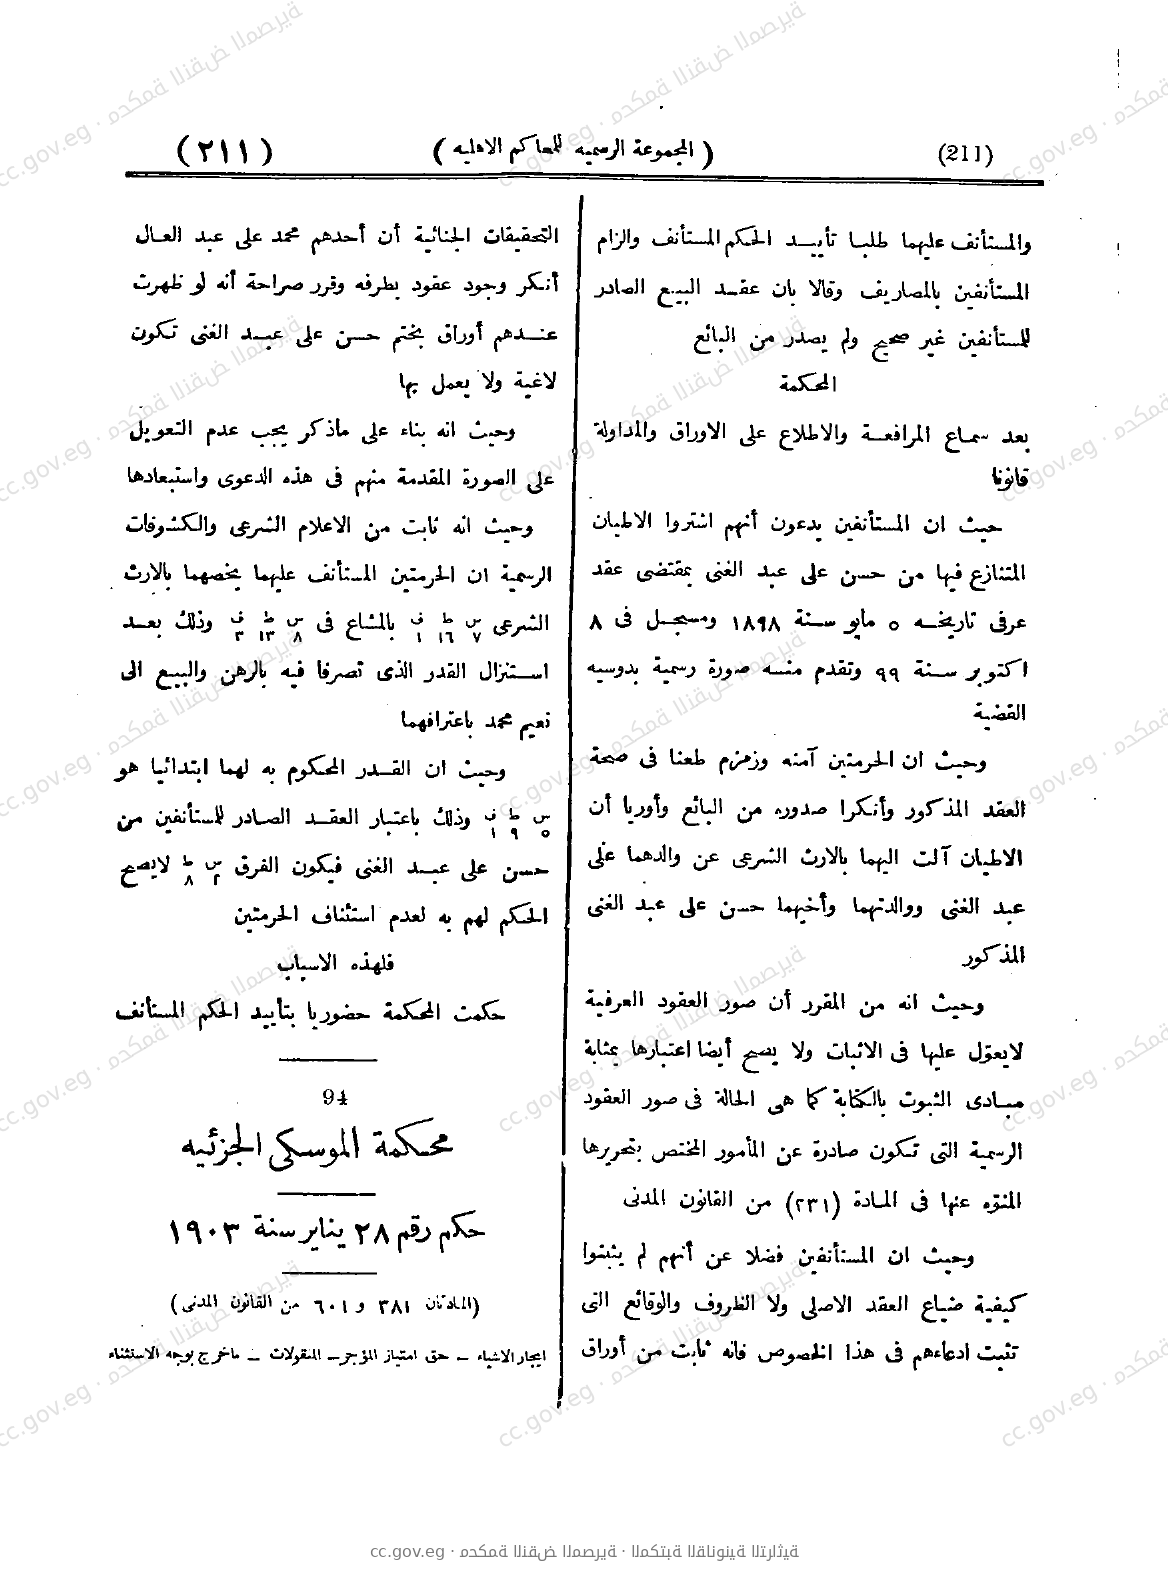 (211) ( المجموعة الرسميه للمحاكم الاهليه ) ( ٢١١ )
والمستأنف عليهما طلبا تأييد الحكم المستأنف والزام
المستأنفين بالمصاريف وقالا بان عقد البيع الصادر
للمستأنفين غير صحيح ولم يصدر من البائع
المحكمة
بعد سماع المرافعة والاطلاع على الاوراق والمداولة
قانونا
حيث ان المستأنفين يدعون أنهم اشتروا الاطيان
المتنازع فيها من حسن على عبد الغنى بمقتضى عقد
عرفى تاريخه ٥ مايو سنة ١٨٩٨ ومسجل فى ٨
اكتوبر سنة ٩٩ وتقدم منه صورة رسمية بدوسيه
القضية
وحيث ان الحرمتين آمنه وزمزم طعنا فى صحة
العقد المذكور وأنكرا صدوره من البائع وأوريا أن
الاطيان آلت اليهما بالارث الشرعى عن والدهما على
عبد الغنى ووالدتهما وأخيهما حسن على عبد الغنى
المذكور
وحيث انه من المقرر أن صور العقود العرفية
لايعوّل عليها فى الاثبات ولا يصح أيضا اعتبارها بمثابة
مبادى الثبوت بالكتابة كما هى الحالة فى صور العقود
الرسمية التى تكون صادرة عن المأمور المختص بتحريرها
المنوّه عنها فى المادة (٢٣١) من القانون المدنى
وحيث ان المستأنفين فضلا عن أنهم لم يثبتوا
كيفية ضياع العقد الاصلى ولا الظروف والوقائع التى
تثبت ادعاءهم فى هذا الخصوص فانه ثابت من أوراق
التحقيقات الجنائية أن أحدهم محمد على عبد العال
أنكر وجود عقود بطرفه وقرر صراحة أنه لو ظهرت
عندهم أوراق بختم حسن على عبد الغنى تكون
لاغية ولا يعمل بها
وحيث انه بناء على ماذكر يجب عدم التعويل
على الصورة المقدمة منهم فى هذه الدعوى واستبعادها
وحيث انه ثابت من الاعلام الشرعى والكشوفات
الرسمية ان الحرمتين المستأنف عليهما يخصهما بالارث
الشرعى س ٧ ط ١٦ ف ١ بالمشاع فى س ٨ ط ١٣ ف ٣ وذلك بعد
استنزال القدر الذى تصرفا فيه بالرهن والبيع الى
نعيم محمد باعترافهما
وحيث ان القدر المحكوم به لهما ابتدائيا هو
س ٥ ط ٩ ف ١ وذلك باعتبار العقد الصادر للمستأنفين من
حسن على عبد الغنى فيكون الفرق س ٢ ط ٨ لايصح
الحكم لهم به لعدم استئناف الحرمتين
فلهذه الاسباب
حكمت المحكمة حضوريا بتأييد الحكم المستأنف
94
محكمة الموسكى الجزئيه
حكم رقم ٢٨ يناير سنة ١٩٠٣
(المادتان ٣٨١ و ٦٠١ من القانون المدنى)
ايجار الاشياء – حق امتياز المؤجر – المنقولات – ماخرج بوجه الاستثناء
cc.gov.eg · محكمة النقض المصرية · المكتبة القانونية التراثية